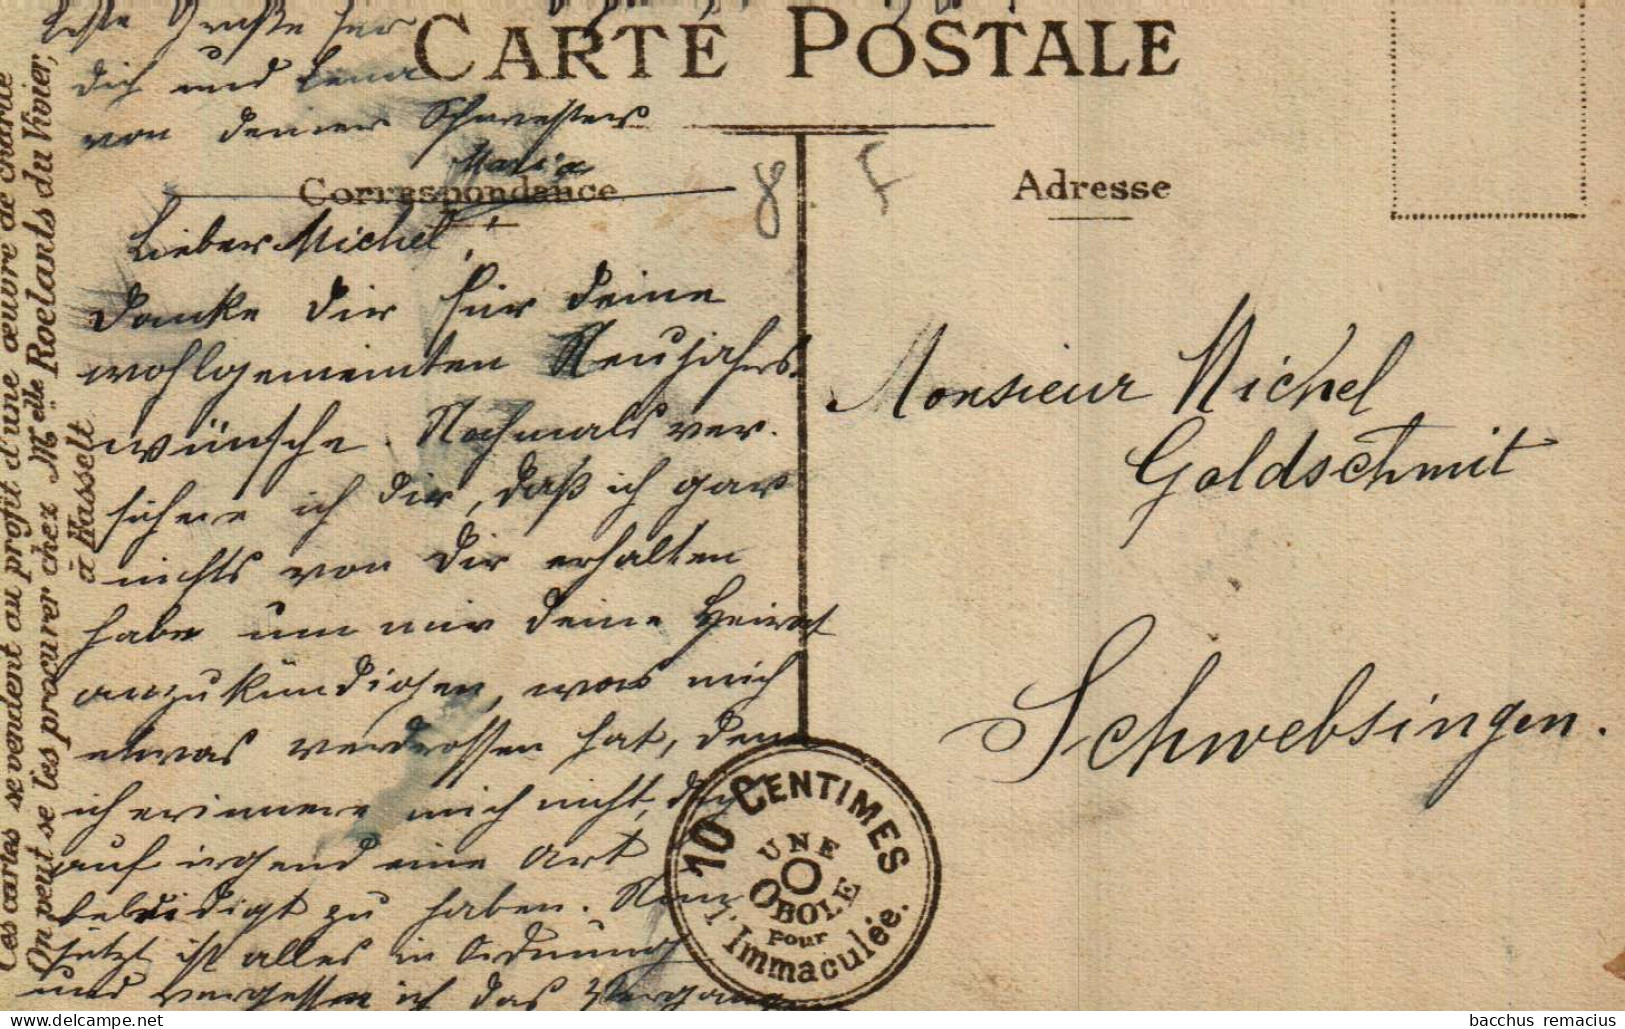 CARTE POSTALE
Correspondance
Adresse
Lieber Michel!
Danke Dir für Deine
wohlgemeinten Neujahrs-
wünsche. Nochmals ver-
sichere ich Dir, daß ich gar
nichts von Dir erhalten
habe um mir Deine Heirat
anzukündigen, was mich
etwas verdrossen hat, denn
ich erinnere mich nicht, dich
auf irgend eine Art
beleidigt zu haben. Nun
jetzt ist alles in Ordnung
und vergessen ich das
Grüße für
Dich und
von Deiner Schwester
Maria
8 F
Monsieur Michel
Goldschmit
Schwebsingen.
10 CENTIMES
UNE
OBOLE
pour
l'Immaculée.
Ces cartes se vendent au profit d'une œuvre de charité
On peut se les procurer chez Melle Roelants du Vivier,
à Hasselt
bacchus remacius